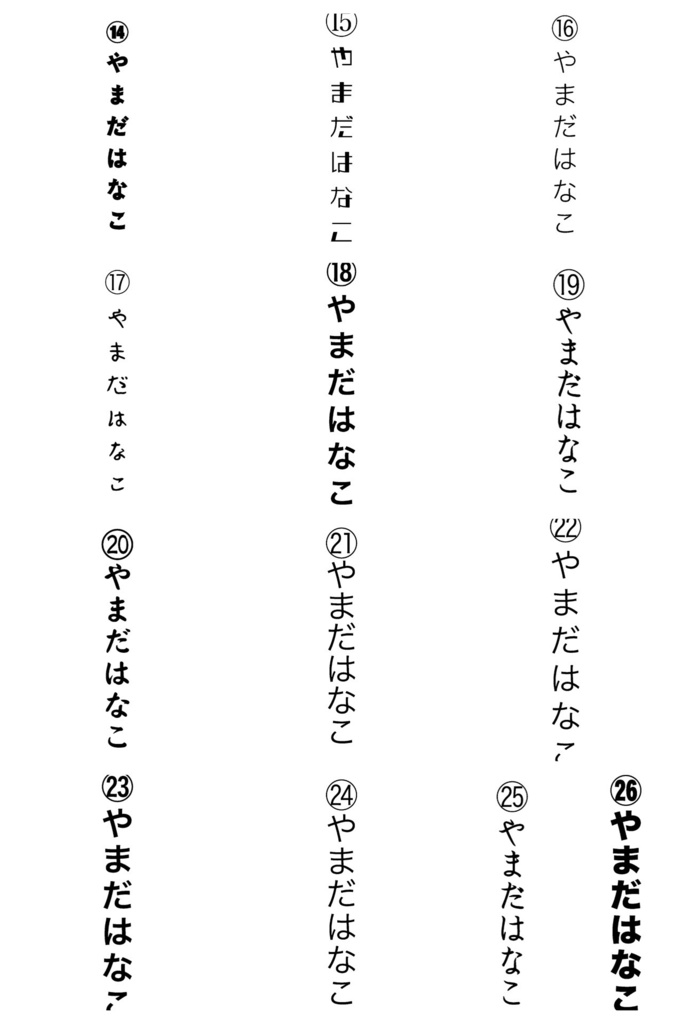 ⑭やまだはなこ
⑮やまだはなこ
⑯やまだはなこ
⑰やまだはなこ
⑱やまだはなこ
⑲やまだはなこ
⑳やまだはなこ
㉑やまだはなこ
㉒やまだはなこ
㉓やまだはなこ
㉔やまだはなこ
㉕やまだはなこ
㉖やまだはなこ